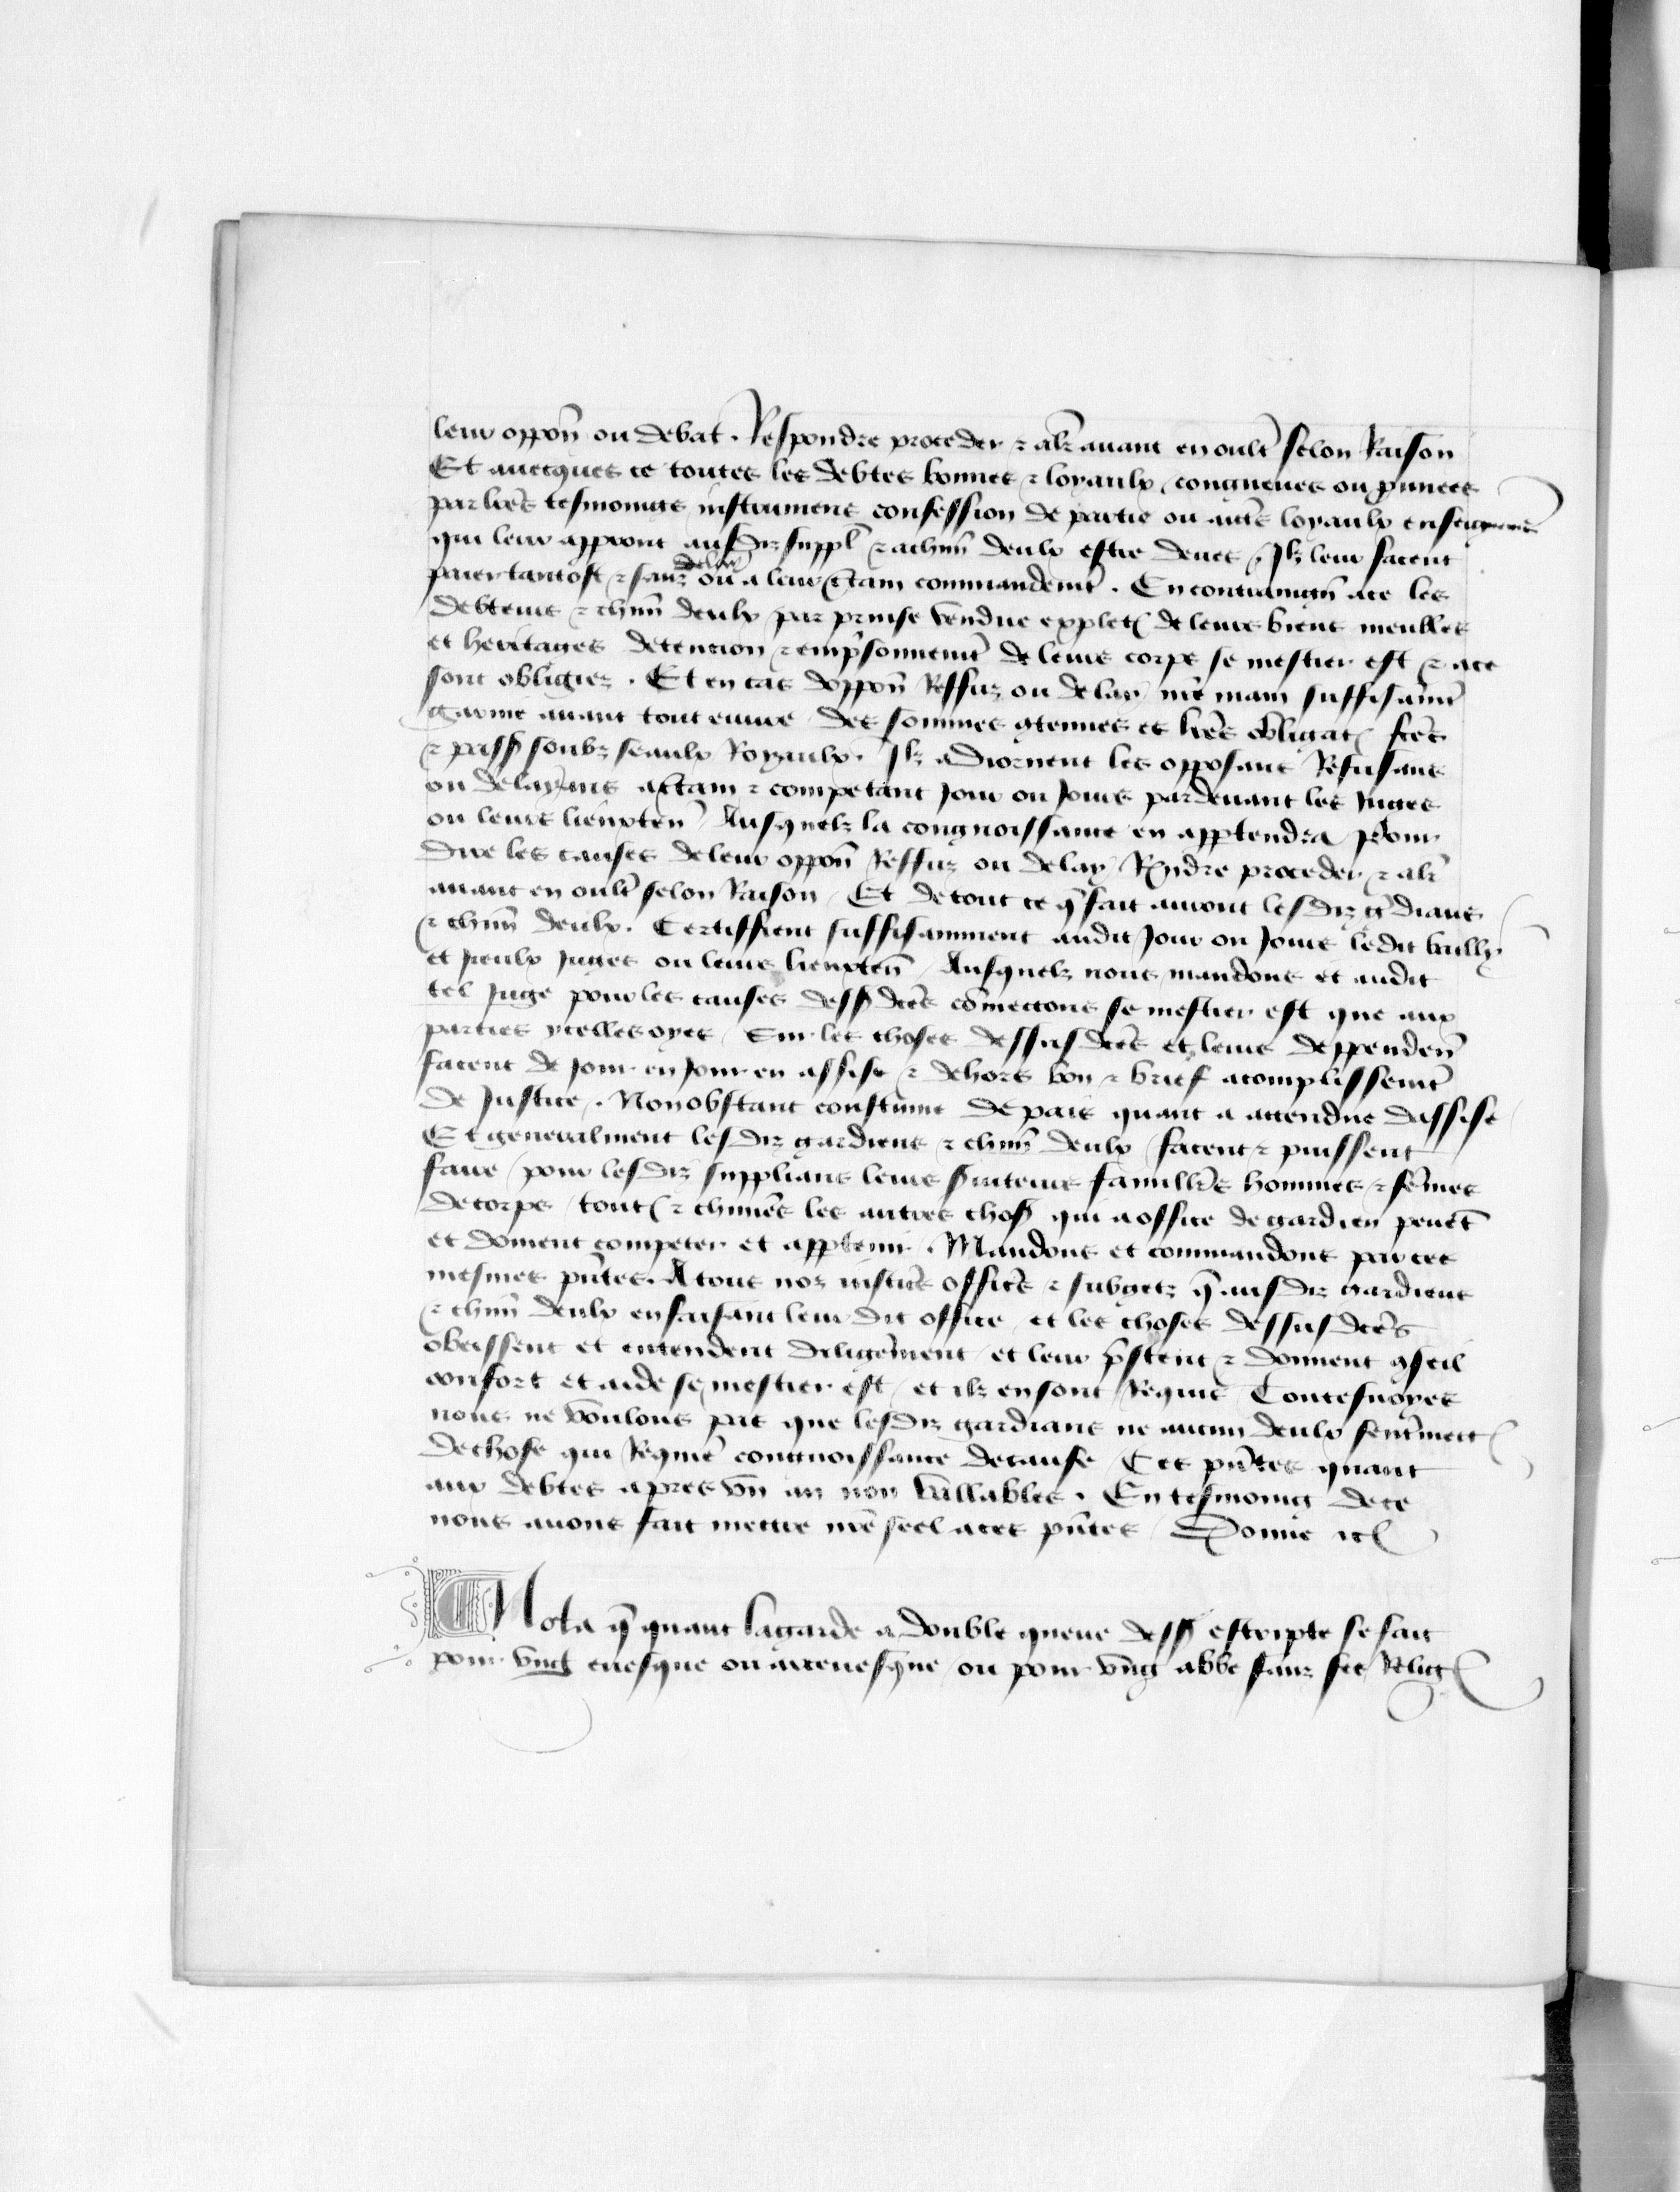 leur oppon̄ ou debat. Respondre proceder ⁊ aler̄ auant en oult̄ selon Raison
Et auecques ce toutes les debtes bonnes ⁊ loyaulx congneues ou prouuees
par lr̄es tesmoings instrumens confession de partie ou aut̄s loyaulx enseignemēs
qui leur apperont ausdiz suppl̄ ⁊ a chūn deulx estre deues / Ilz leur facent
paier tantost ⁊ sanz delay ou a leur c̄tain commandemēt. En contraignan̄ a ce les
debteurs ⁊ chūn deulx par prinse vendue explet̄ de leurs biens meubles
et heritages detencion ⁊ emp̄sonnemēt de leurs corps se mestier est ⁊ a ce
sont obligiez. Et en cas doppon̄ Reffuz ou delay nr̄e main suffisāmēt
garnie auant tout euure des sommes 9tenues es lr̄es obligat̄ fc̄es
⁊ pass̄ soubz seaulx Royaulx. Ilz adiornent les opposans Refusans
ou delayans a c̄tain ⁊ competant Jour ou Jours pardeuant les Juges
ou leurs lieuxten̄ Ausquelz la congnoissance en appt̄endra Pour
dire les causes de leur oppon̄ Reffuz ou delay Rn̄dre proceder ⁊ aler̄
auant en oult̄ selon Raison. Et de tout ce q̄ fait auront lesdiz g̈dians
⁊ chūn deulx. Certiffient suffisamment audit Jour ou Jours ledit bailly
et Iceulx Juges ou leurs lieuxten̄ Ausquelz nous mandons et audit
tel Juge pour les causes dess̄ dc̄es cōmectons se mestier est que aux
parties ycelles oyes Sur les choses dessus dc̄es et leurs deppenden̄
facent de Jour en Jour en assise ⁊ dehors bon ⁊ brief acomplissemēt
de Justice. Nonobstant coustume de pais quant a actendue dassise
Et generalment lesdiz gardiens ⁊ chūn deulx facent ⁊ puissent
faire pour lesdiz supplians leurs s̄uiteurs famill̄rs hommes ⁊ fēmes
de corps tout̄ ⁊ chūnes les autres chos̄ qui a office de gardien peuēt
et doiuent competer et appt̄enir. Mandons et commandons par ces
mesmes pn̄tes. A tous noz iustic̄s offic̄s ⁊ subgetz q̄ ausdiz gardiens
⁊ chūn deulx en faisant leur dit office et les choses dessus dc̄es
obeissent et entendent diligēment et leur p̄stent ⁊ donnent 9seil
confort et aide se mestier est et ilz en sont Requis Toutesuoyes
nous ne voulons pas que lesdiz gardians ne aucun deulx sent̄mect̄
de chose qui Requier̄ congnoissance de cause Ces pn̄tes quant
aux debtes apres vn̄ an non vallables. En tesmoing de ce
nous auons fait mectre nr̄e seel a ces pn̄tes Donne etc̄
Nota q̄ quant la garde a double queue dess̄ escripte se fait
pour vng euesque ou arceuesq̄ue ou pour vng abbe sanz ses Reliḡ